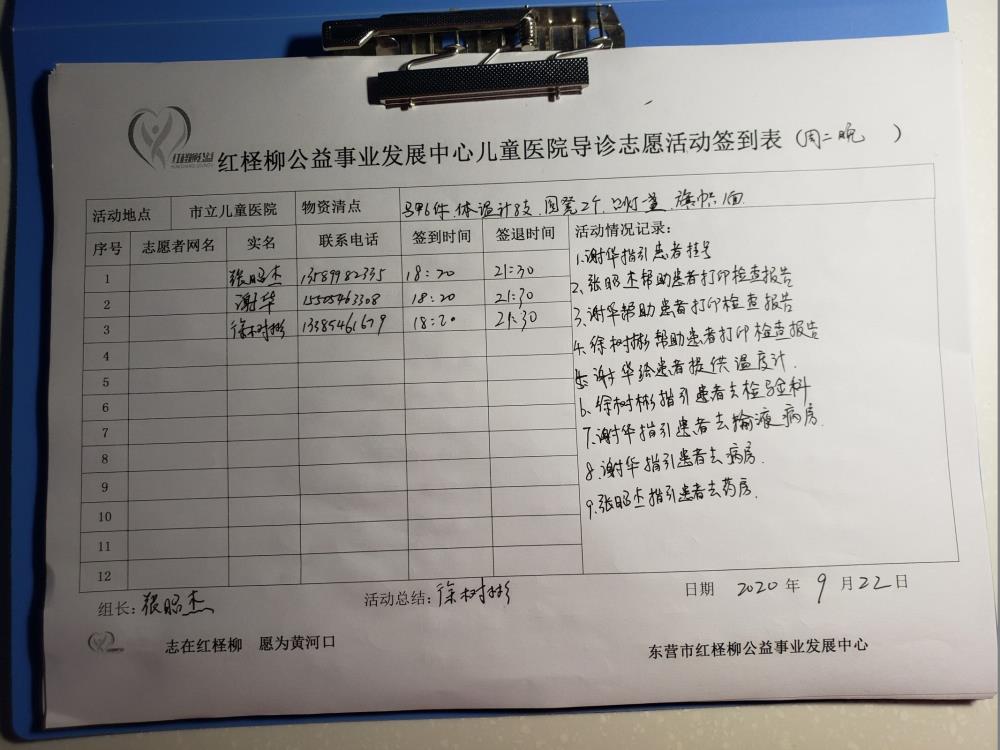 红柽柳公益
红柽柳公益事业发展中心儿童医院导诊志愿活动签到表（周二晚 ）
活动地点 市立儿童医院 物资清点 马甲6件、体温计8支、圆凳2个、口灯 旗帜1面
序号 志愿者网名 实名 联系电话 签到时间 签退时间 活动情况记录:
1 张昭杰 13589982335 18:20 21:30
2 谢华 15505463308 18:20 21:30
3 徐树彬 13385461679 18:20 21:30
4
5
6
7
8
9
10
11
12
1.谢华指引患者挂号
2.张昭杰帮助患者打印检查报告
3.谢华帮助患者打印检查报告
4.徐树彬帮助患者打印检查报告
5.谢华给患者提供温度计.
6.徐树彬指引患者去检验科
7.谢华指引患者去输液病房.
8.谢华指引患者去病房.
9.张昭杰指引患者去药房.
组长:张昭杰 活动总结:徐树彬 日期 2020年9月22日
志在红柽柳 愿为黄河口 东营市红柽柳公益事业发展中心